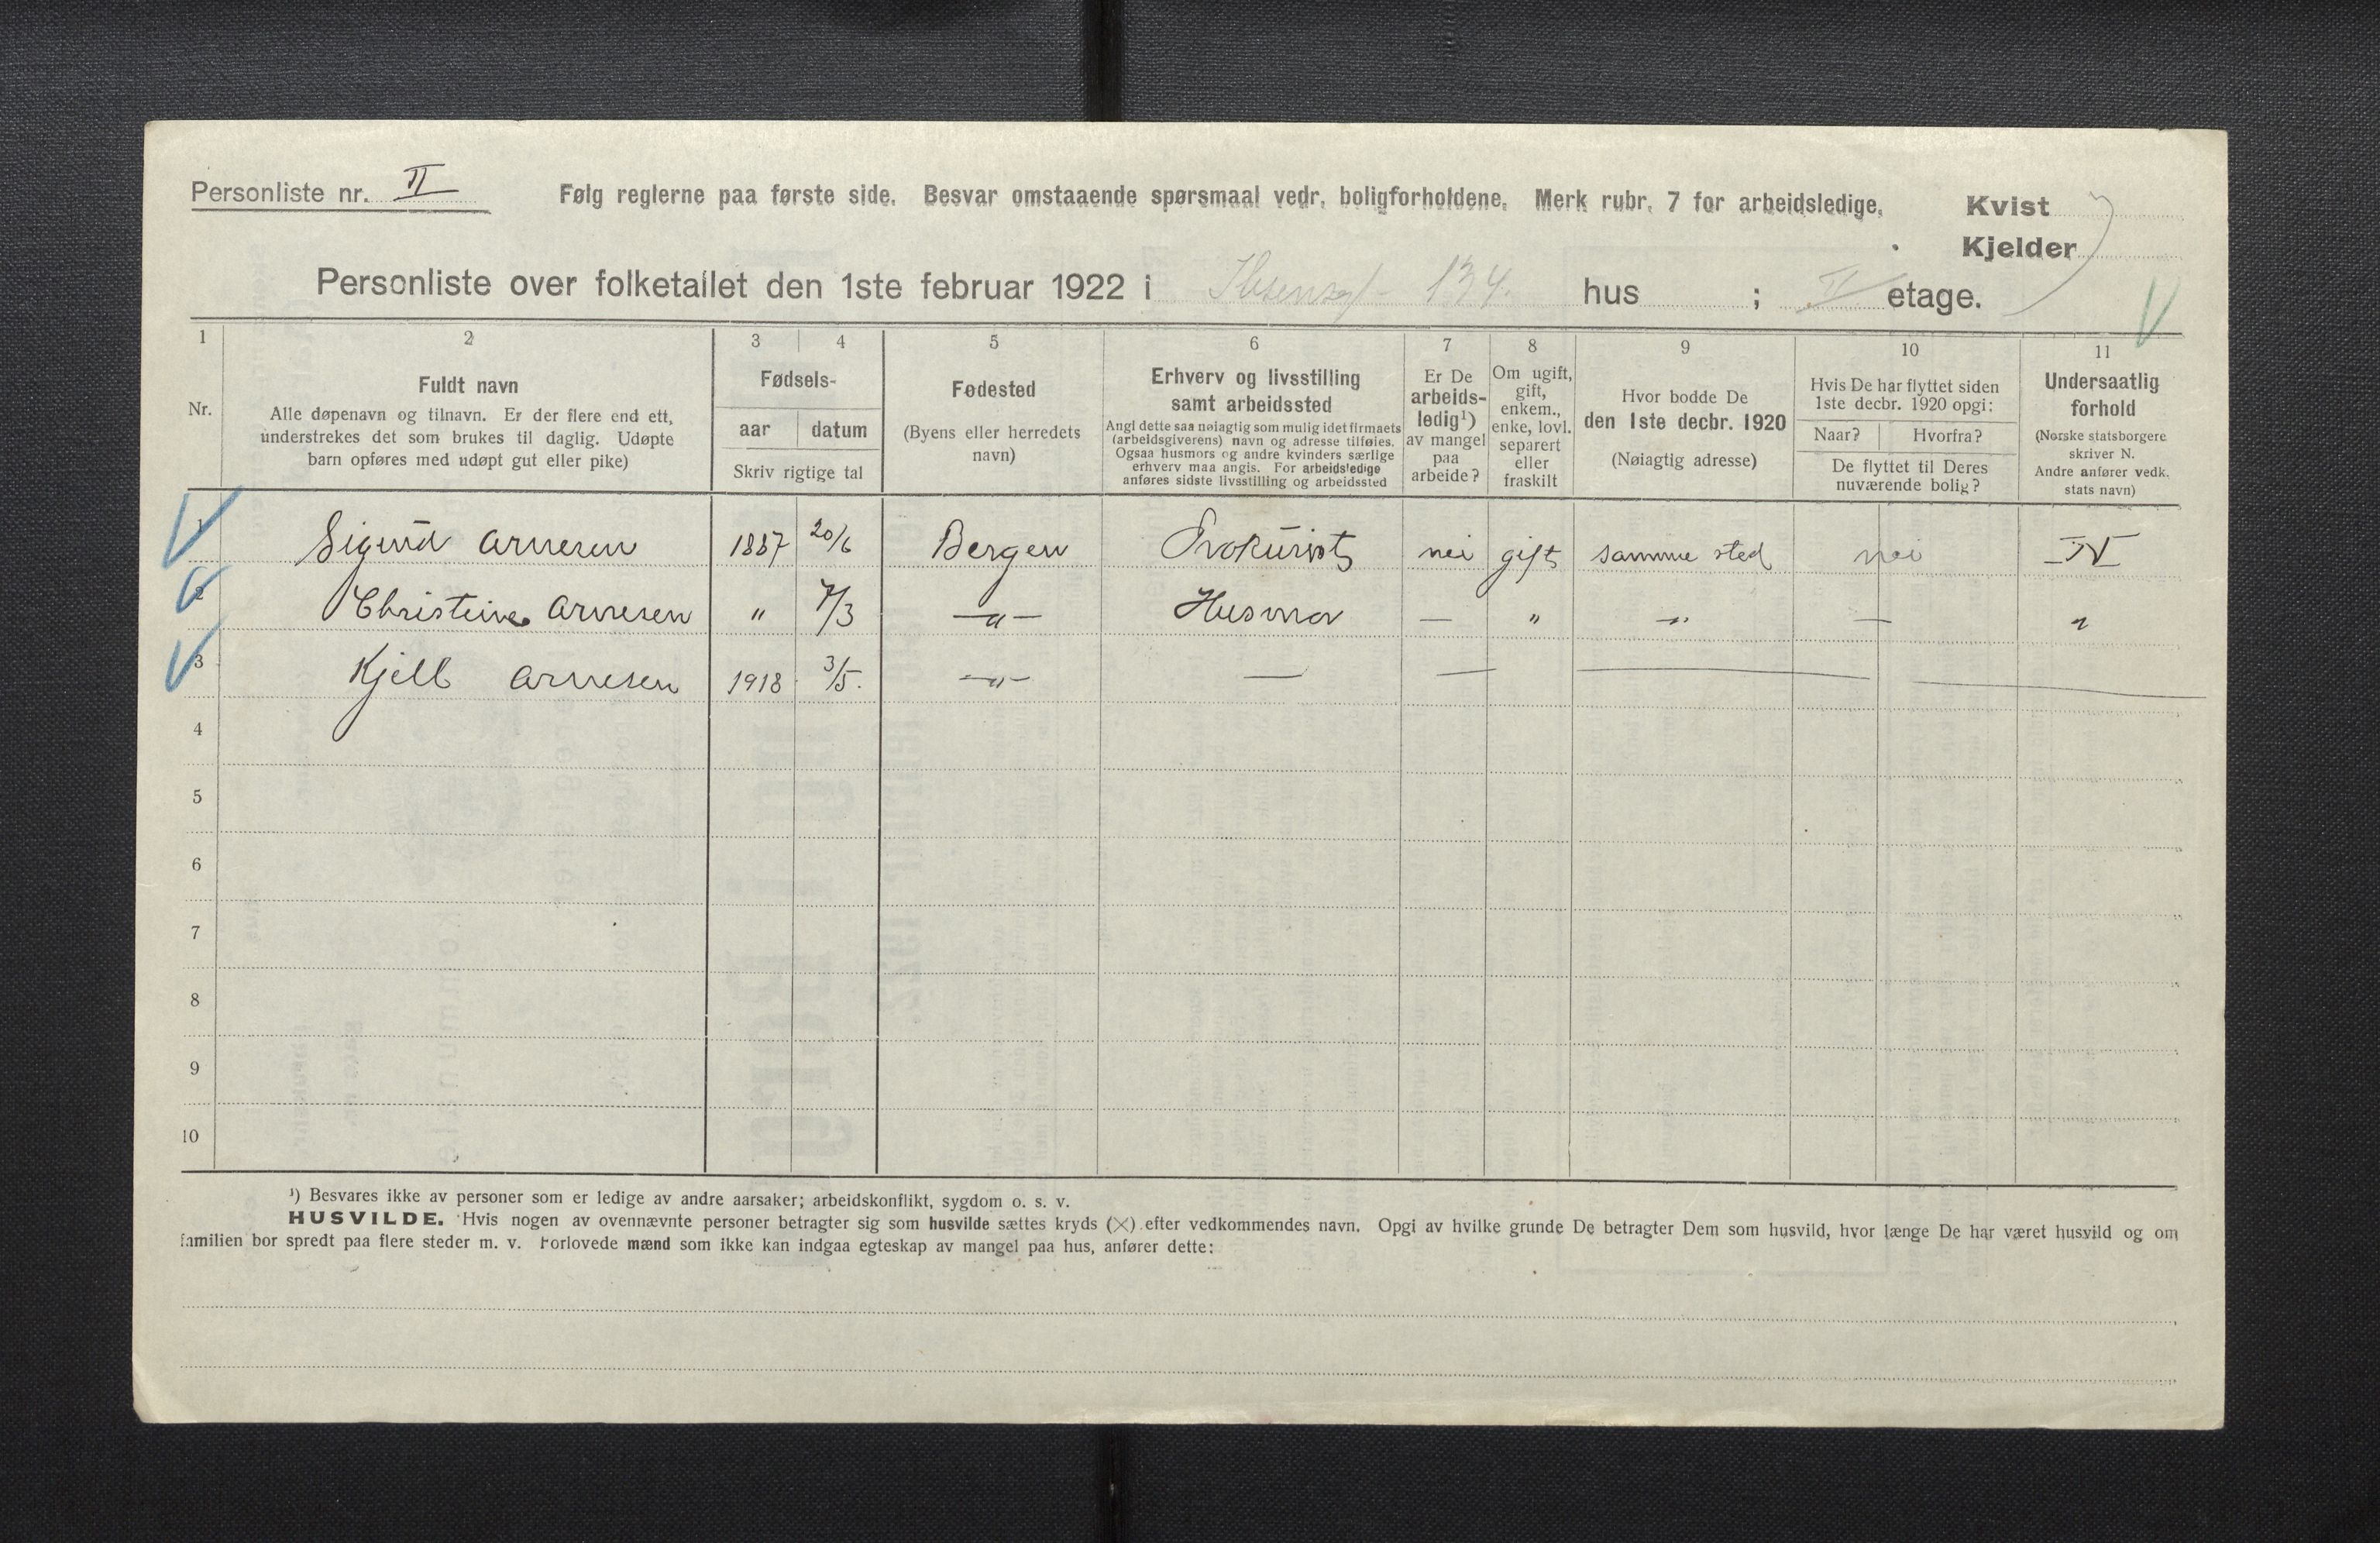 Personliste nr. II Følg reglerne paa første side. Besvar omstaaende spørsmaal vedr. boligforholdene. Merk rubr. 7 for arbeidsledige. Kvist
Kjelder
Personliste over folketallet den 1ste februar 1922 i Ibsensgt 134. hus ; II etage.
1 2 3 4 5 6 7 8 9 10 11
Nr.
Fuldt navn
Alle døpenavn og tilnavn. Er der flere end ett,
understrekes det som brukes til daglig. Udøpte
barn opføres med udøpt gut eller pike)
Fødsels-
aar datum
Skriv rigtige tal
Fødested
(Byens eller herredets
navn)
Erhverv og livsstilling
samt arbeidssted
Angi dette saa nøiagtig som mulig idet firmaets
(arbeidsgiverens) navn og adresse tilføies.
Ogsaa husmors og andre kvinders særlige
erhverv maa angis. For arbeidsledige
anføres sidste livsstilling og arbeidssted
Er De
arbeids-
ledig¹)
av mangel
paa
arbeide?
Om ugift,
gift,
enkem.,
enke, lovl.
separert
eller
fraskilt
Hvor bodde De
den 1ste decbr. 1920
(Nøiagtig adresse)
Hvis De har flyttet siden
1ste decbr. 1920 opgi:
Naar? Hvorfra?
De flyttet til Deres
nuværende bolig?
Undersaatlig
forhold
(Norske statsborgere
skriver N.
Andre anfører vedk.
stats navn)
1 Sigurd Arnesen 1887 20/6 Bergen Prokurist nei gift samme sted nei N
2 Christine Arnesen " 7/3 —"— Husmor — " —"— — "
3 Kjell Arnesen 1918 3/5. —"— — — — —
4
5
6
7
8
9
10
¹) Besvares ikke av personer som er ledige av andre aarsaker; arbeidskonflikt, sygdom o. s. v.
HUSVILDE. Hvis nogen av ovennævnte personer betragter sig som husvilde sættes kryds (×) efter vedkommendes navn. Opgi av hvilke grunde De betragter Dem som husvild, hvor længe De har været husvild og om
familien bor spredt paa flere steder m. v. Forlovede mænd som ikke kan indgaa egteskap av mangel paa hus, anfører dette: